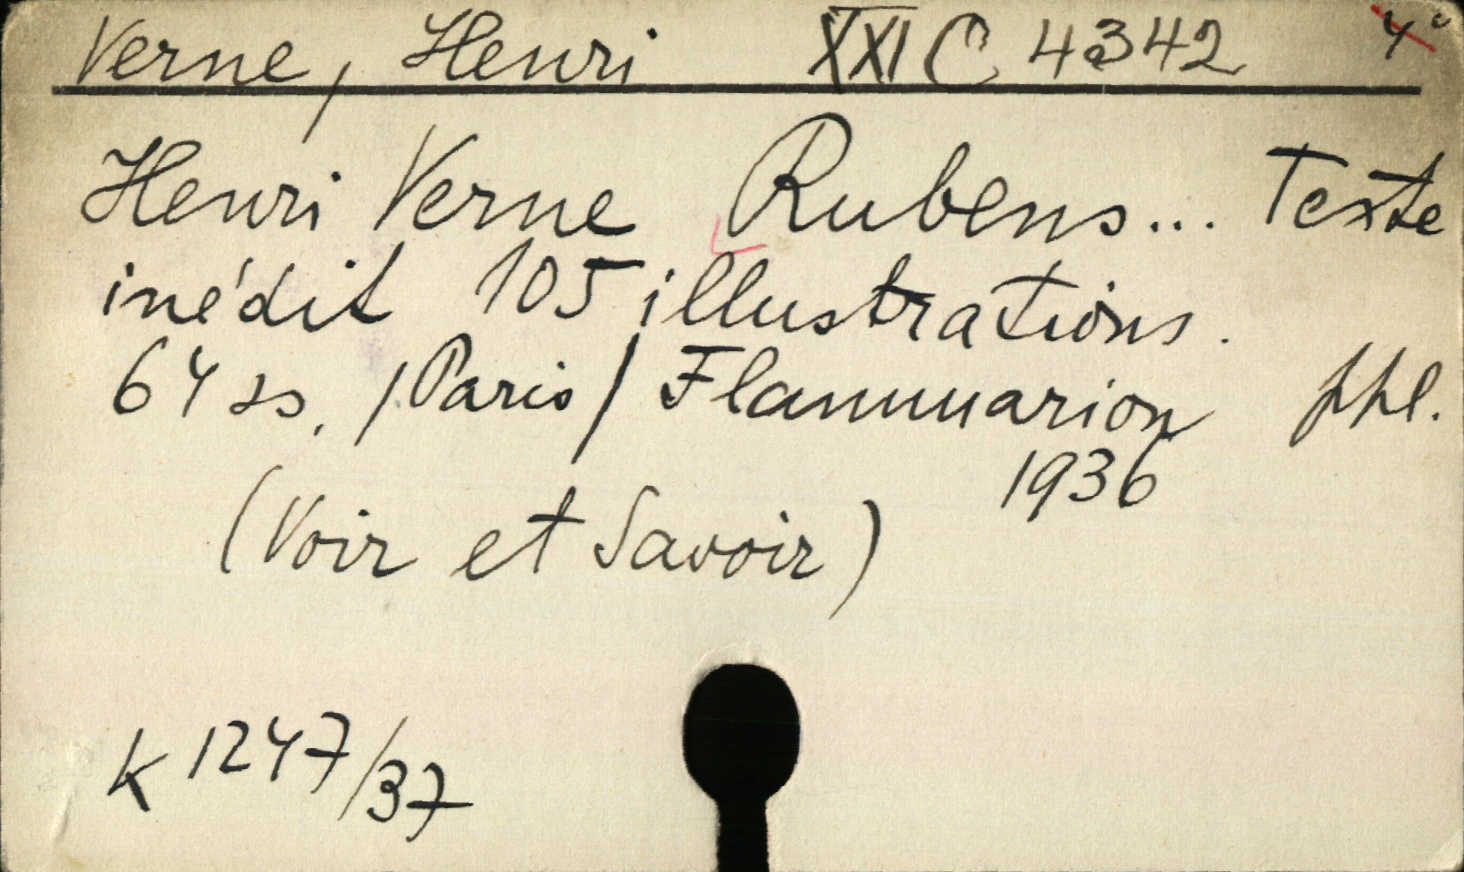 Verne, Henri XXI C 4342 4°
Henri Verne Rubens... Texte
inédit 105 illustrations.
64 ss, /Paris/ Flammarion ppl.
1936
(Voir et Savoir)
K 1247/37